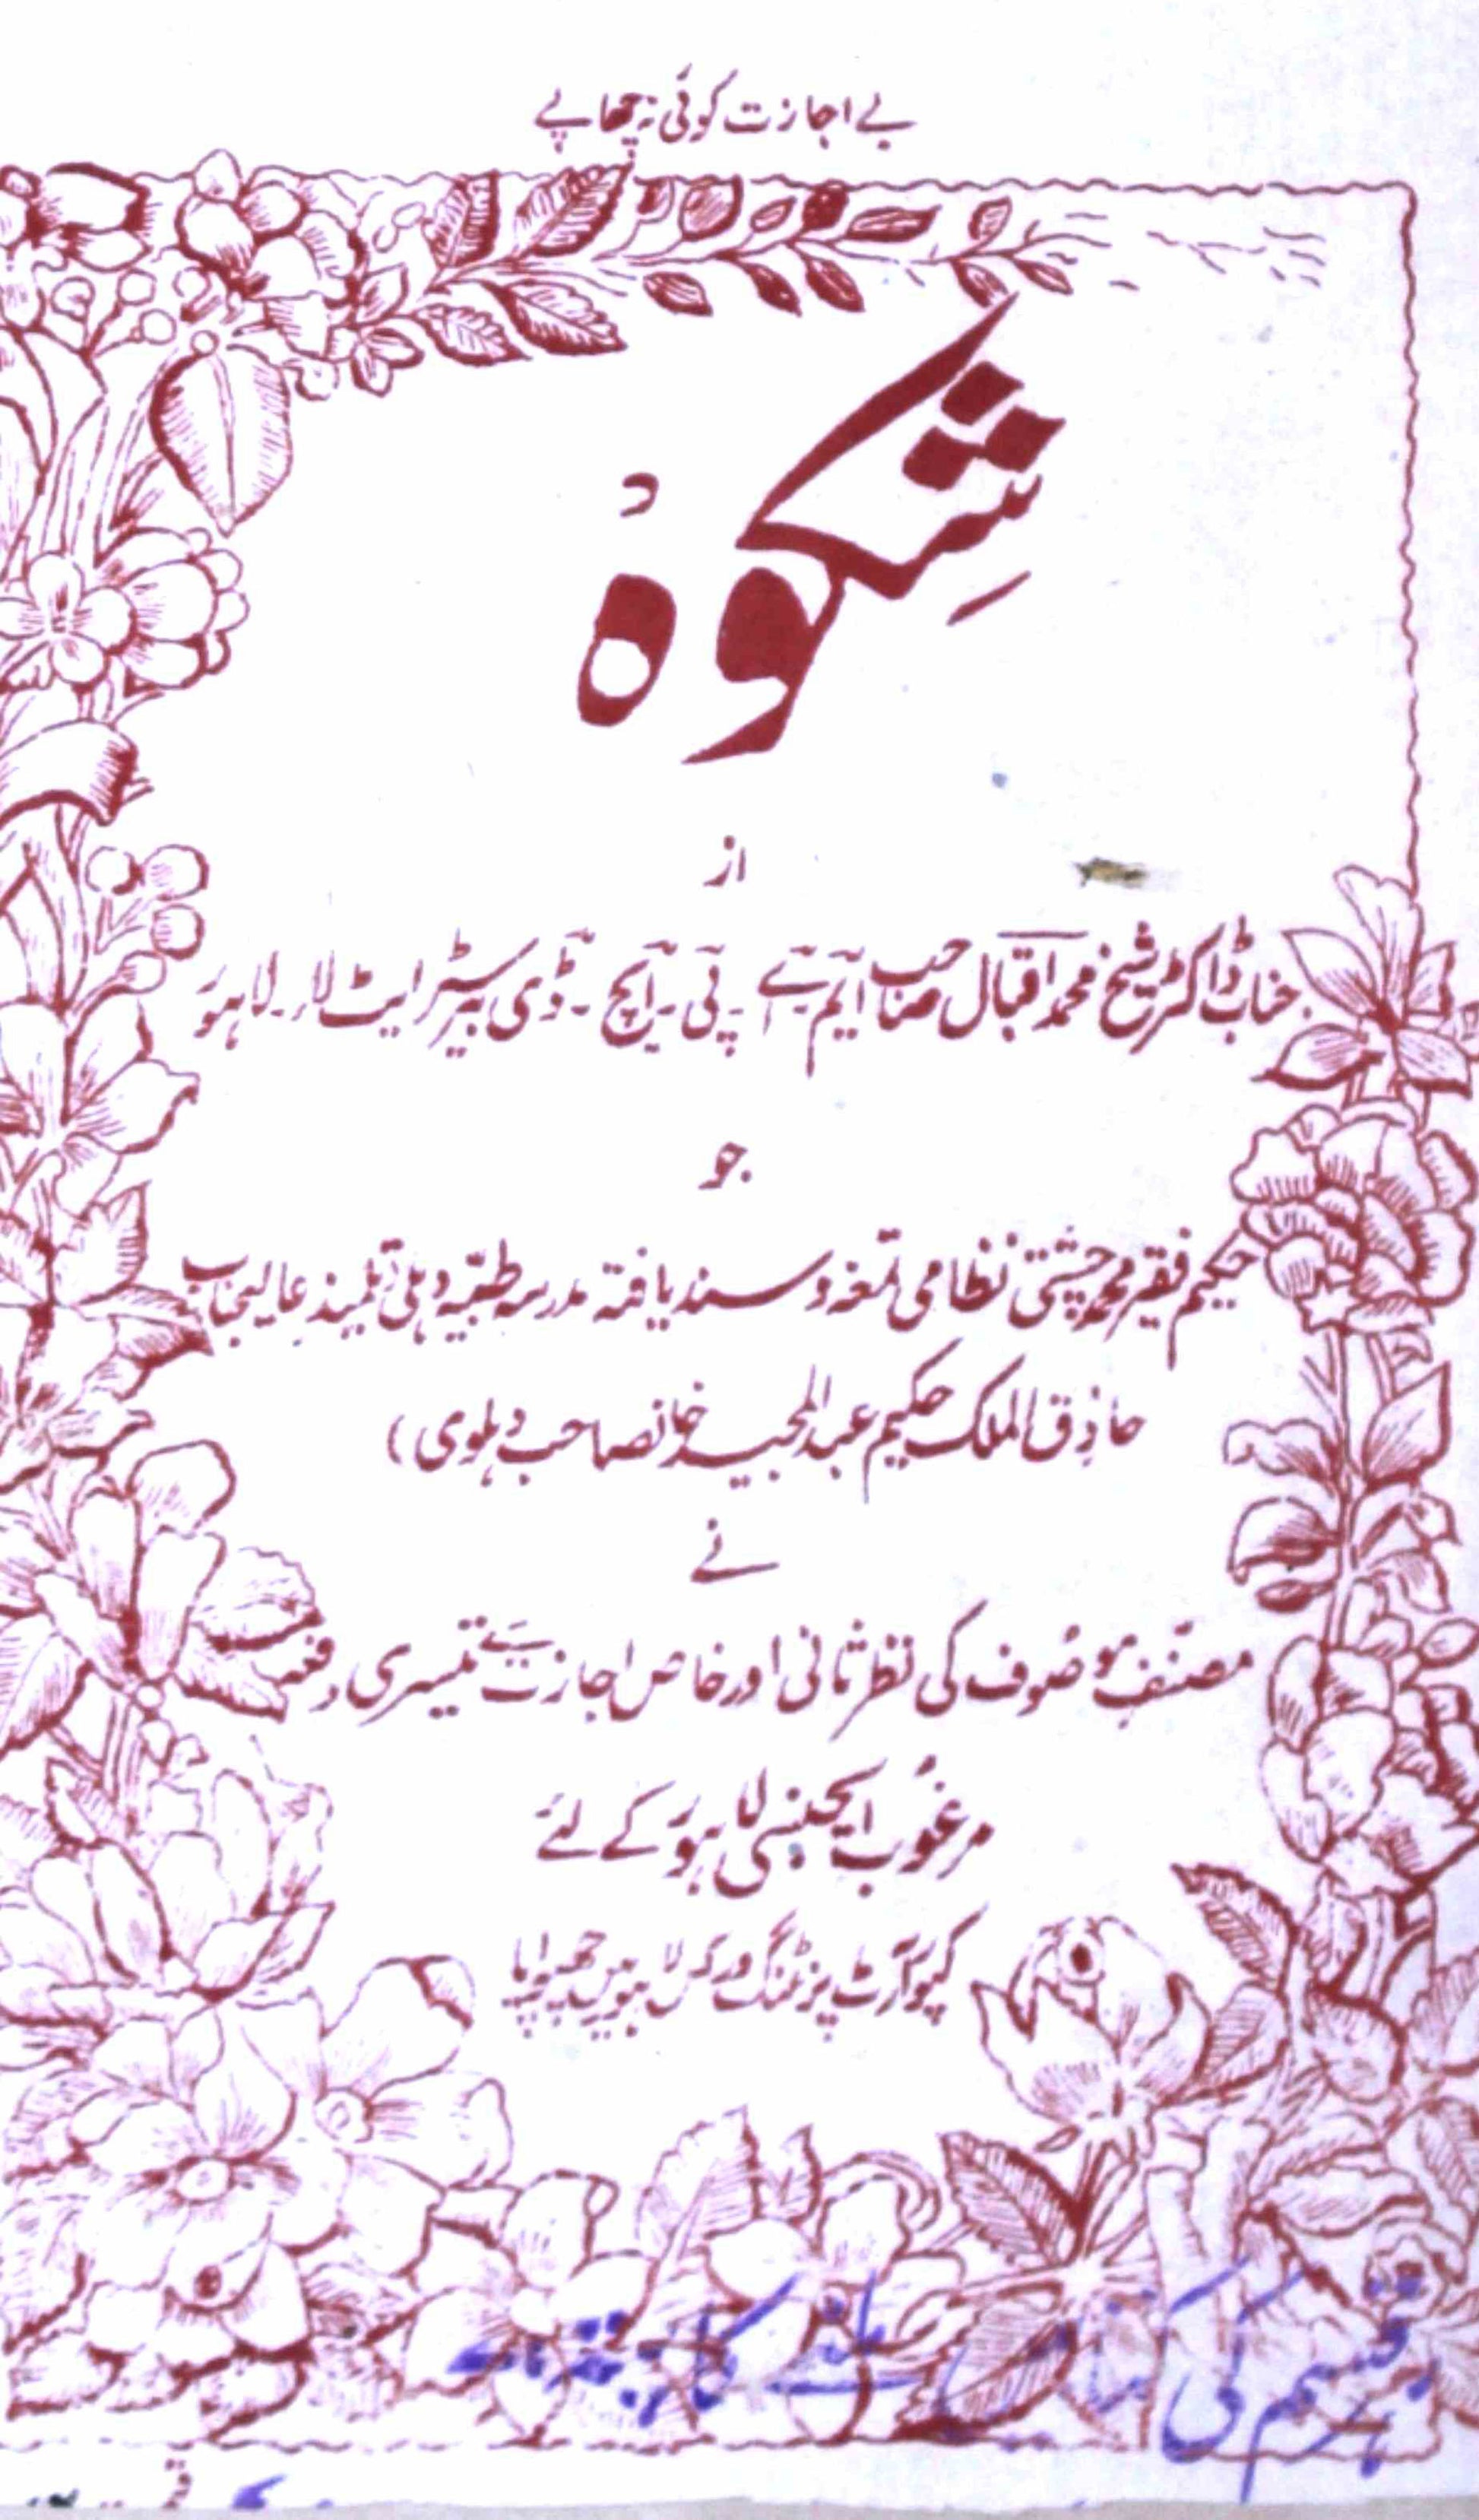 بے اجازت کوئی نہ چھاپے
شکوہ
از
جناب ڈاکٹر شیخ محمد اقبال صاحب ایم۔ اے۔ پی۔ ایچ۔ ڈی بیرسٹر ایٹ لا۔ لاہور
جو
حکیم فقیر محمد چشتی نظامی تمغہ و سند یافتہ مدرسہ طبیہ دہلی تلمیذ عالیجناب
حاذق الملک حکیم عبدالمجید خانصاحب دہلوی)
نے
مصنف موصوف کی نظر ثانی اور خاص اجازت سے تیسری دفعہ
مرغوب ایجنسی لاہور کے لئے
کپور آرٹ پرنٹنگ ورکس لاہور میں چھپوایا
ہر قسم کی
ملنے کا پتہ